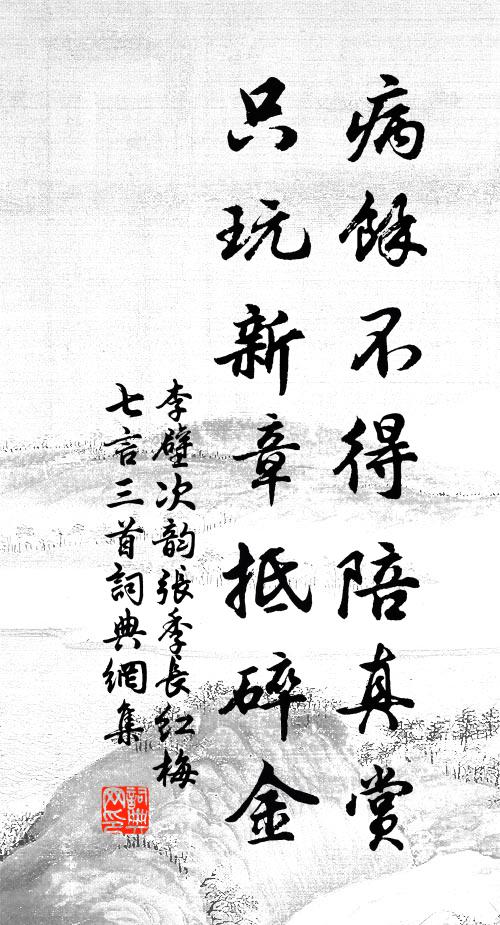 病餘不得陪真賞
只玩新章抵碎金
李壁次韵張季長紅梅
七言三首詞典網集
詞典
网印